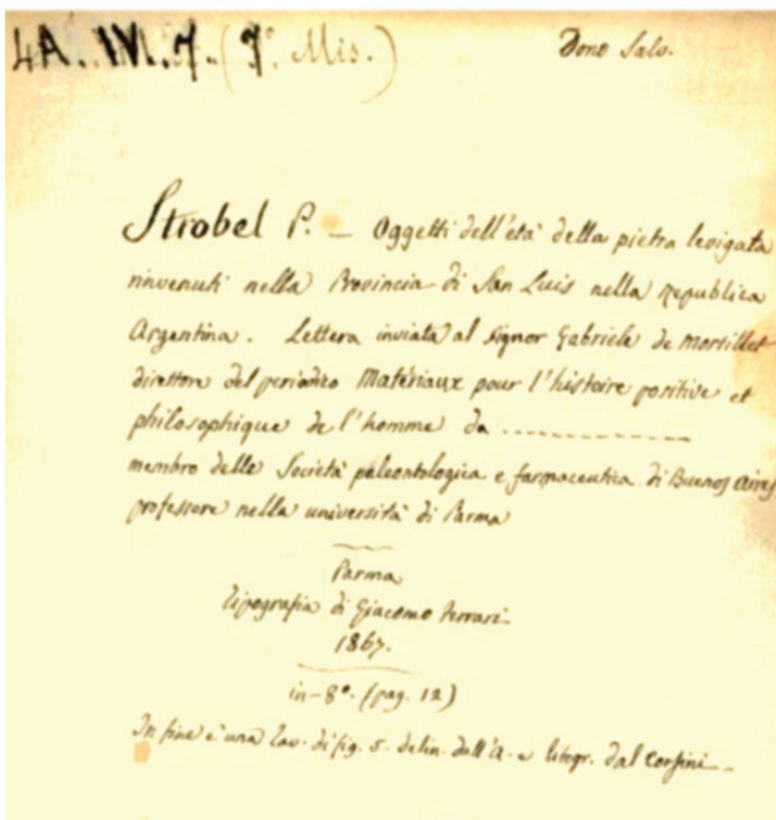 4A. IV. 7. (7° Mis.)
Dono Salv.
Strobel P. — Oggetti dell'età della pietra levigata
rinvenuti nella Provincia di San Luis nella Republica
Argentina. Lettera inviata al Signor Gabriele de Mortillet
direttore del periodico Matériaux pour l'histoire positive et
philosophique de l'homme da ................
membro delle Società paleontologica e farmaceutica di Buenos Aires,
professore nella università di Parma
Parma
tipografia di Giacomo Ferrari
1867.
in-8°. (pag. 12)
In fine è una tav. di fig. 5. delin. dall'A. e litogr. dal Corsini —